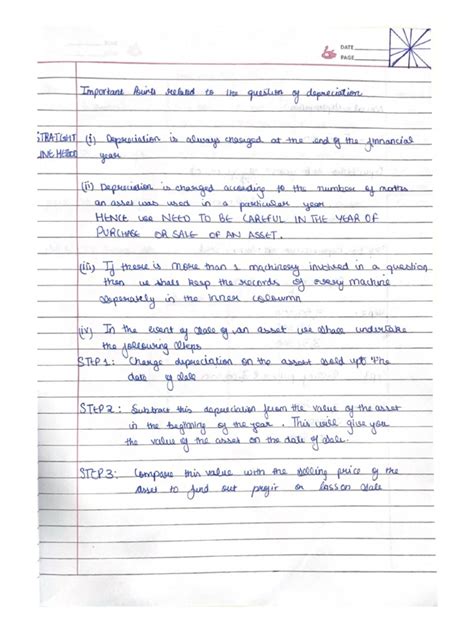 DATE
PAGE
Important Points related to the question of depreciation
STRAIGHT
LINE METHOD
(i) Depreciation is always charged at the end of the financial
year
(ii) Depreciation is charged according to the number of months
an asset was used in a particular year
HENCE WE NEED TO BE CAREFUL IN THE YEAR OF
PURCHASE OR SALE OF AN ASSET.
(iii) If there is more than 1 machinery involved in a question
then we shall keep the records of every machine
seperately in the inner coloumn
(iv) In the event of sale of an asset we shall undertake
the following steps
STEP 1: Charge depreciation on the asset sold upto the
date of sale
STEP 2: Subtract this depreciation from the value of the asset
in the beginning of the year. This will give you
the value of the asset on the date of sale.
STEP 3: Compare this value with the selling price of the
asset to find out profit or loss on sale